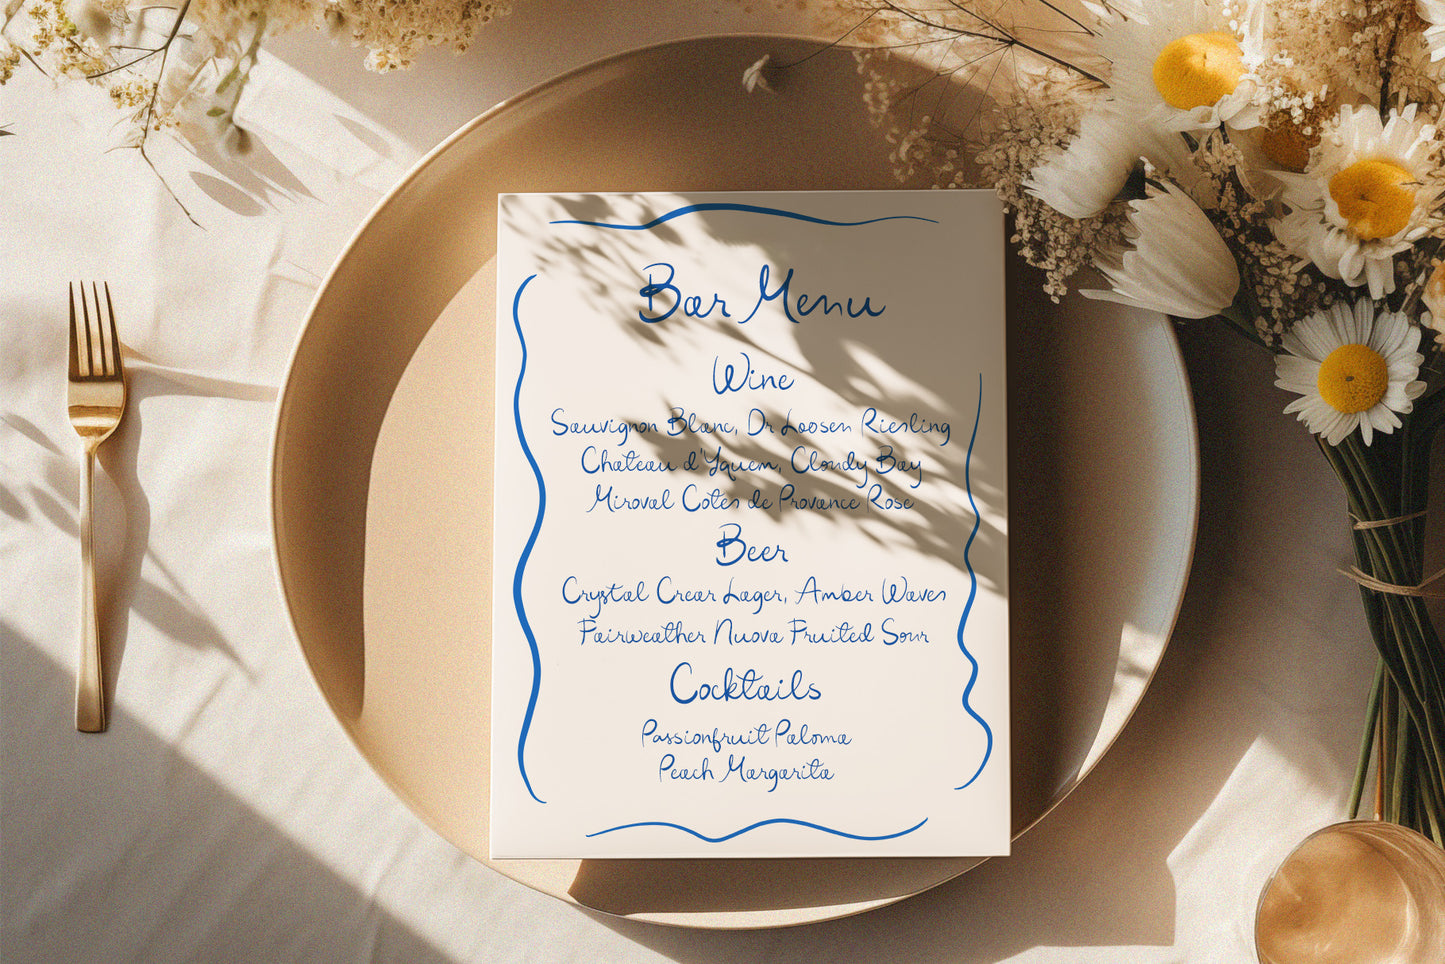 Bar Menu
Wine
Sauvignon Blanc, Dr Loosen Riesling
Chateau d'Yquem, Cloudy Bay
Miraval Cotes de Provance Rose
Beer
Crystal Crear Lager, Amber Waves
Fairweather Nuova Fruited Sour
Cocktails
Passionfruit Paloma
Peach Margarita